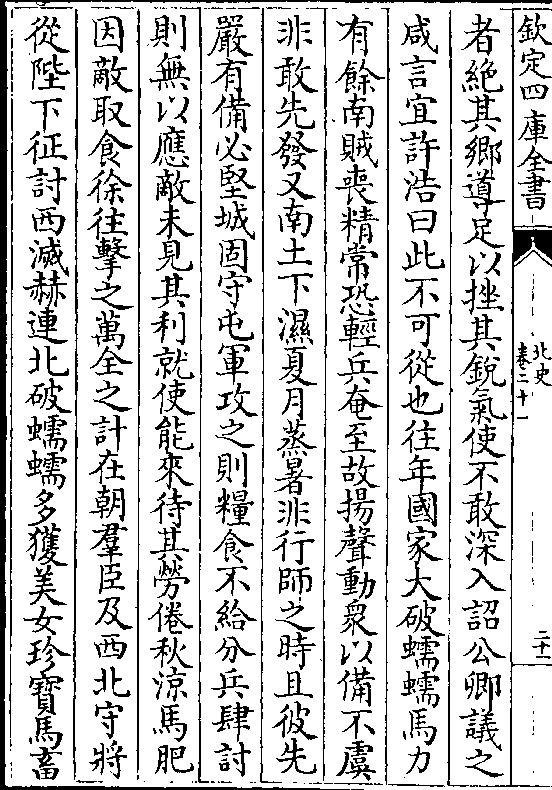 欽定四庫全書
北史
卷二十一
二十一
者絶其鄉導足以挫其銳氣使不敢深入詔公卿議之
咸言宜許浩曰此不可從也往年國家大破蠕蠕馬力
有餘南賊喪精常恐輕兵奄至故揚聲動衆以備不虞
非敢先發又南土下濕夏月蒸暑非行師之時且彼先
嚴有備必堅城固守屯軍攻之則糧食不給分兵肆討
則無以應敵未見其利就使能來待其勞倦秋涼馬肥
因敵取食徐往擊之萬全之計在朝羣臣及西北守將
從陛下征討西滅赫連北破蠕蠕多獲美女珍寶馬畜